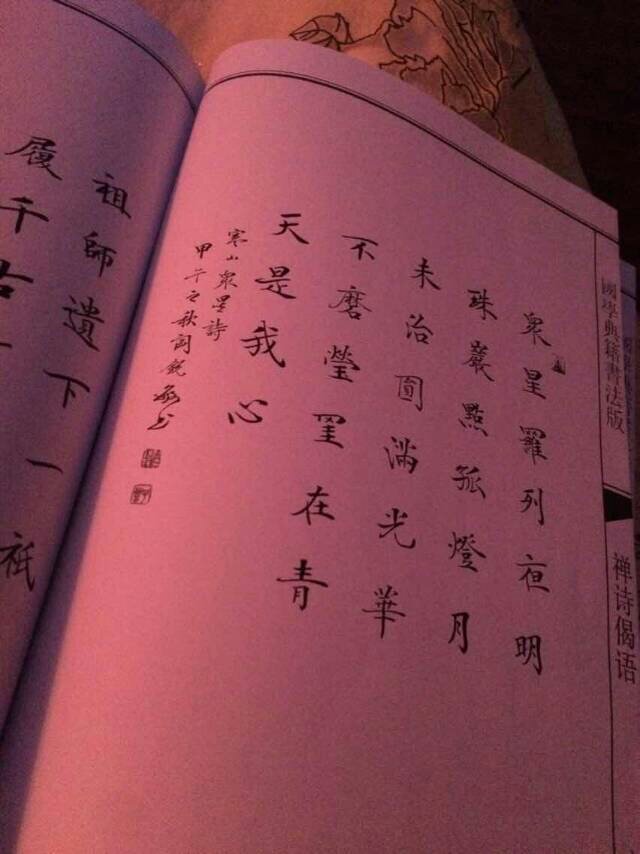 國學典籍書法版
禅诗偈语
衆星羅列夜明
珠巖點孤燈月
未治圓滿光華
不磨瑩罣在青
天是我心
寒山衆星詩
甲午之秋
祖師遺下一祇
履千古